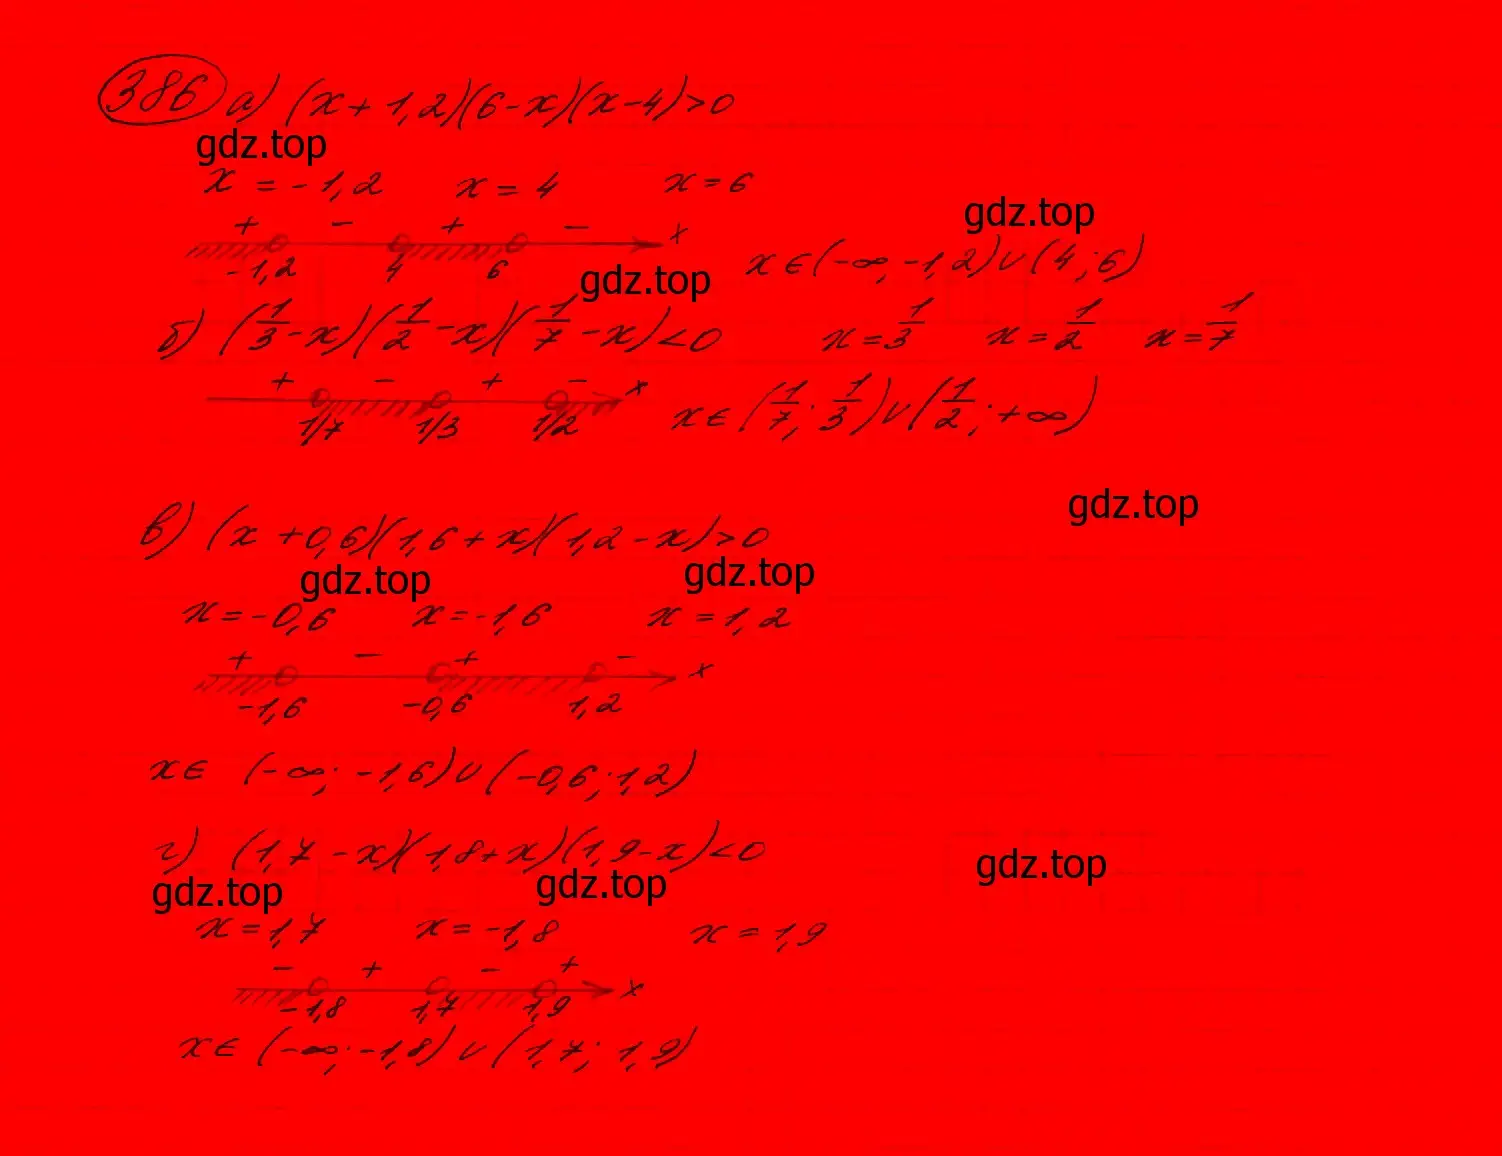 386 а) (x + 1,2)(6 - x)(x - 4) > 0
gdz.top
x = -1,2 x = 4 x = 6
gdz.top
+ - + - x
-1,2 4 6 x ∈ (-∞, -1,2) ∪ (4; 6)
gdz.top
б) (1/3 - x)(1/2 - x)(1/7 - x) < 0 x = 1/3 x = 1/2 x = 1/7
+ - + - x
1/7 1/3 1/2 x ∈ (1/7; 1/3) ∪ (1/2; +∞)
gdz.top
в) (x + 0,6)(1,6 + x)(1,2 - x) > 0
gdz.top gdz.top
x = -0,6 x = -1,6 x = 1,2
+ - + - x
-1,6 -0,6 1,2
x ∈ (-∞; -1,6) ∪ (-0,6; 1,2)
г) (1,7 - x)(1,8 + x)(1,9 - x) < 0
gdz.top gdz.top gdz.top
x = 1,7 x = -1,8 x = 1,9
- + - + x
-1,8 1,7 1,9
x ∈ (-∞; -1,8) ∪ (1,7; 1,9)